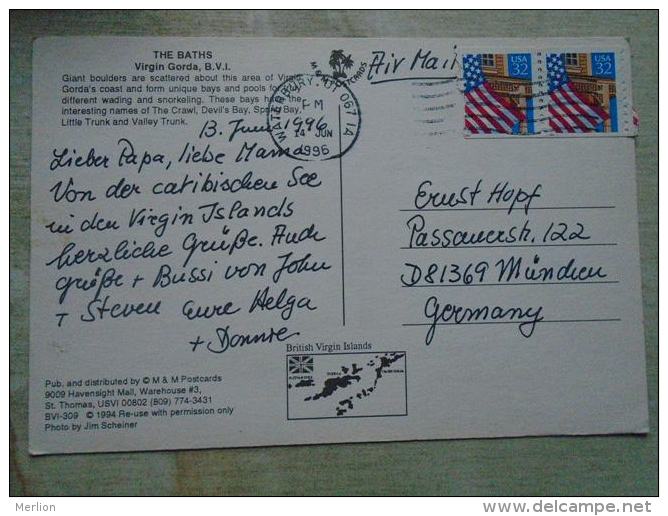 THE BATHS
Virgin Gorda, B.V.I.
Giant boulders are scattered about this area of Virgin
Gorda's coast and form unique bays and pools for
different wading and snorkeling. These bays have the
interesting names of The Crawl, Devil's Bay, Spring Bay,
Little Trunk and Valley Trunk.
M & M POSTCARDS
Air Mail
USA 32
USA 32
WATERBURY, CT 067 1A
PM
14 JUN
1996
13. Juni 1996
Lieber Papa, liebe Mama
Von der caribischen See
in den Virgin Islands
herzliche Grüße. Auch
grüße + Bussi von John
+ Steven Eure Helga
+ Donnie
Ernst Hopf
Passauerstr. 122
D81369 München
Germany
British Virgin Islands
Pub. and distributed by © M & M Postcards
9009 Havensight Mall, Warehouse #3,
St. Thomas, USVI 00802 (809) 774-3431
BVI-309 © 1994 Re-use with permission only
Photo by Jim Scheiner
Merlion
delcampe.net